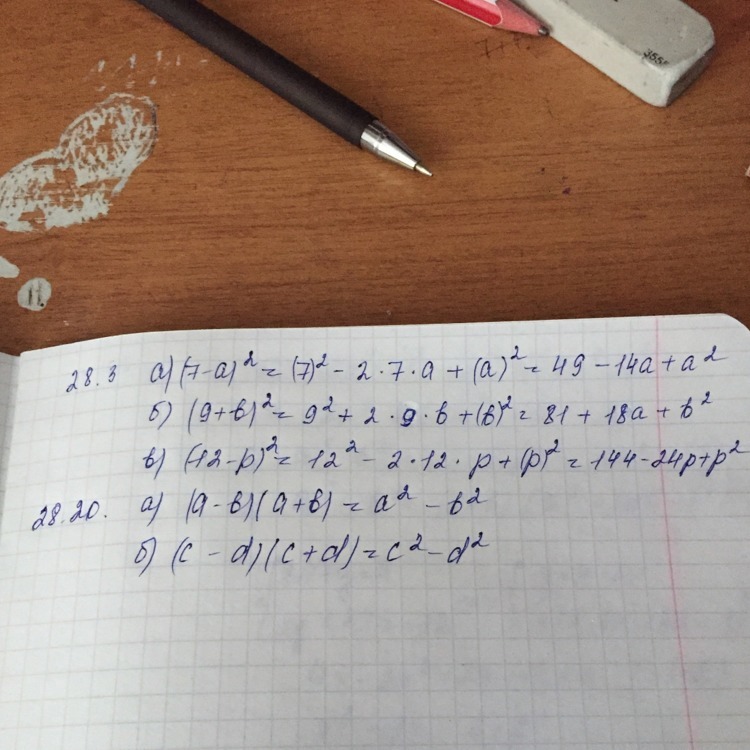 7+
355
28.3 а) (7-a)² = (7)² - 2·7·a + (a)² = 49 - 14a + a²
б) (9+b)² = 9² + 2·9·b + (b)² = 81 + 18a + b²
в) (-12-p)² = 12² - 2·12·p + (p)² = 144-24p+p²
28.20. а) (a-b)(a+b) = a² - b²
б) (c-d)(c+d) = c² - d²